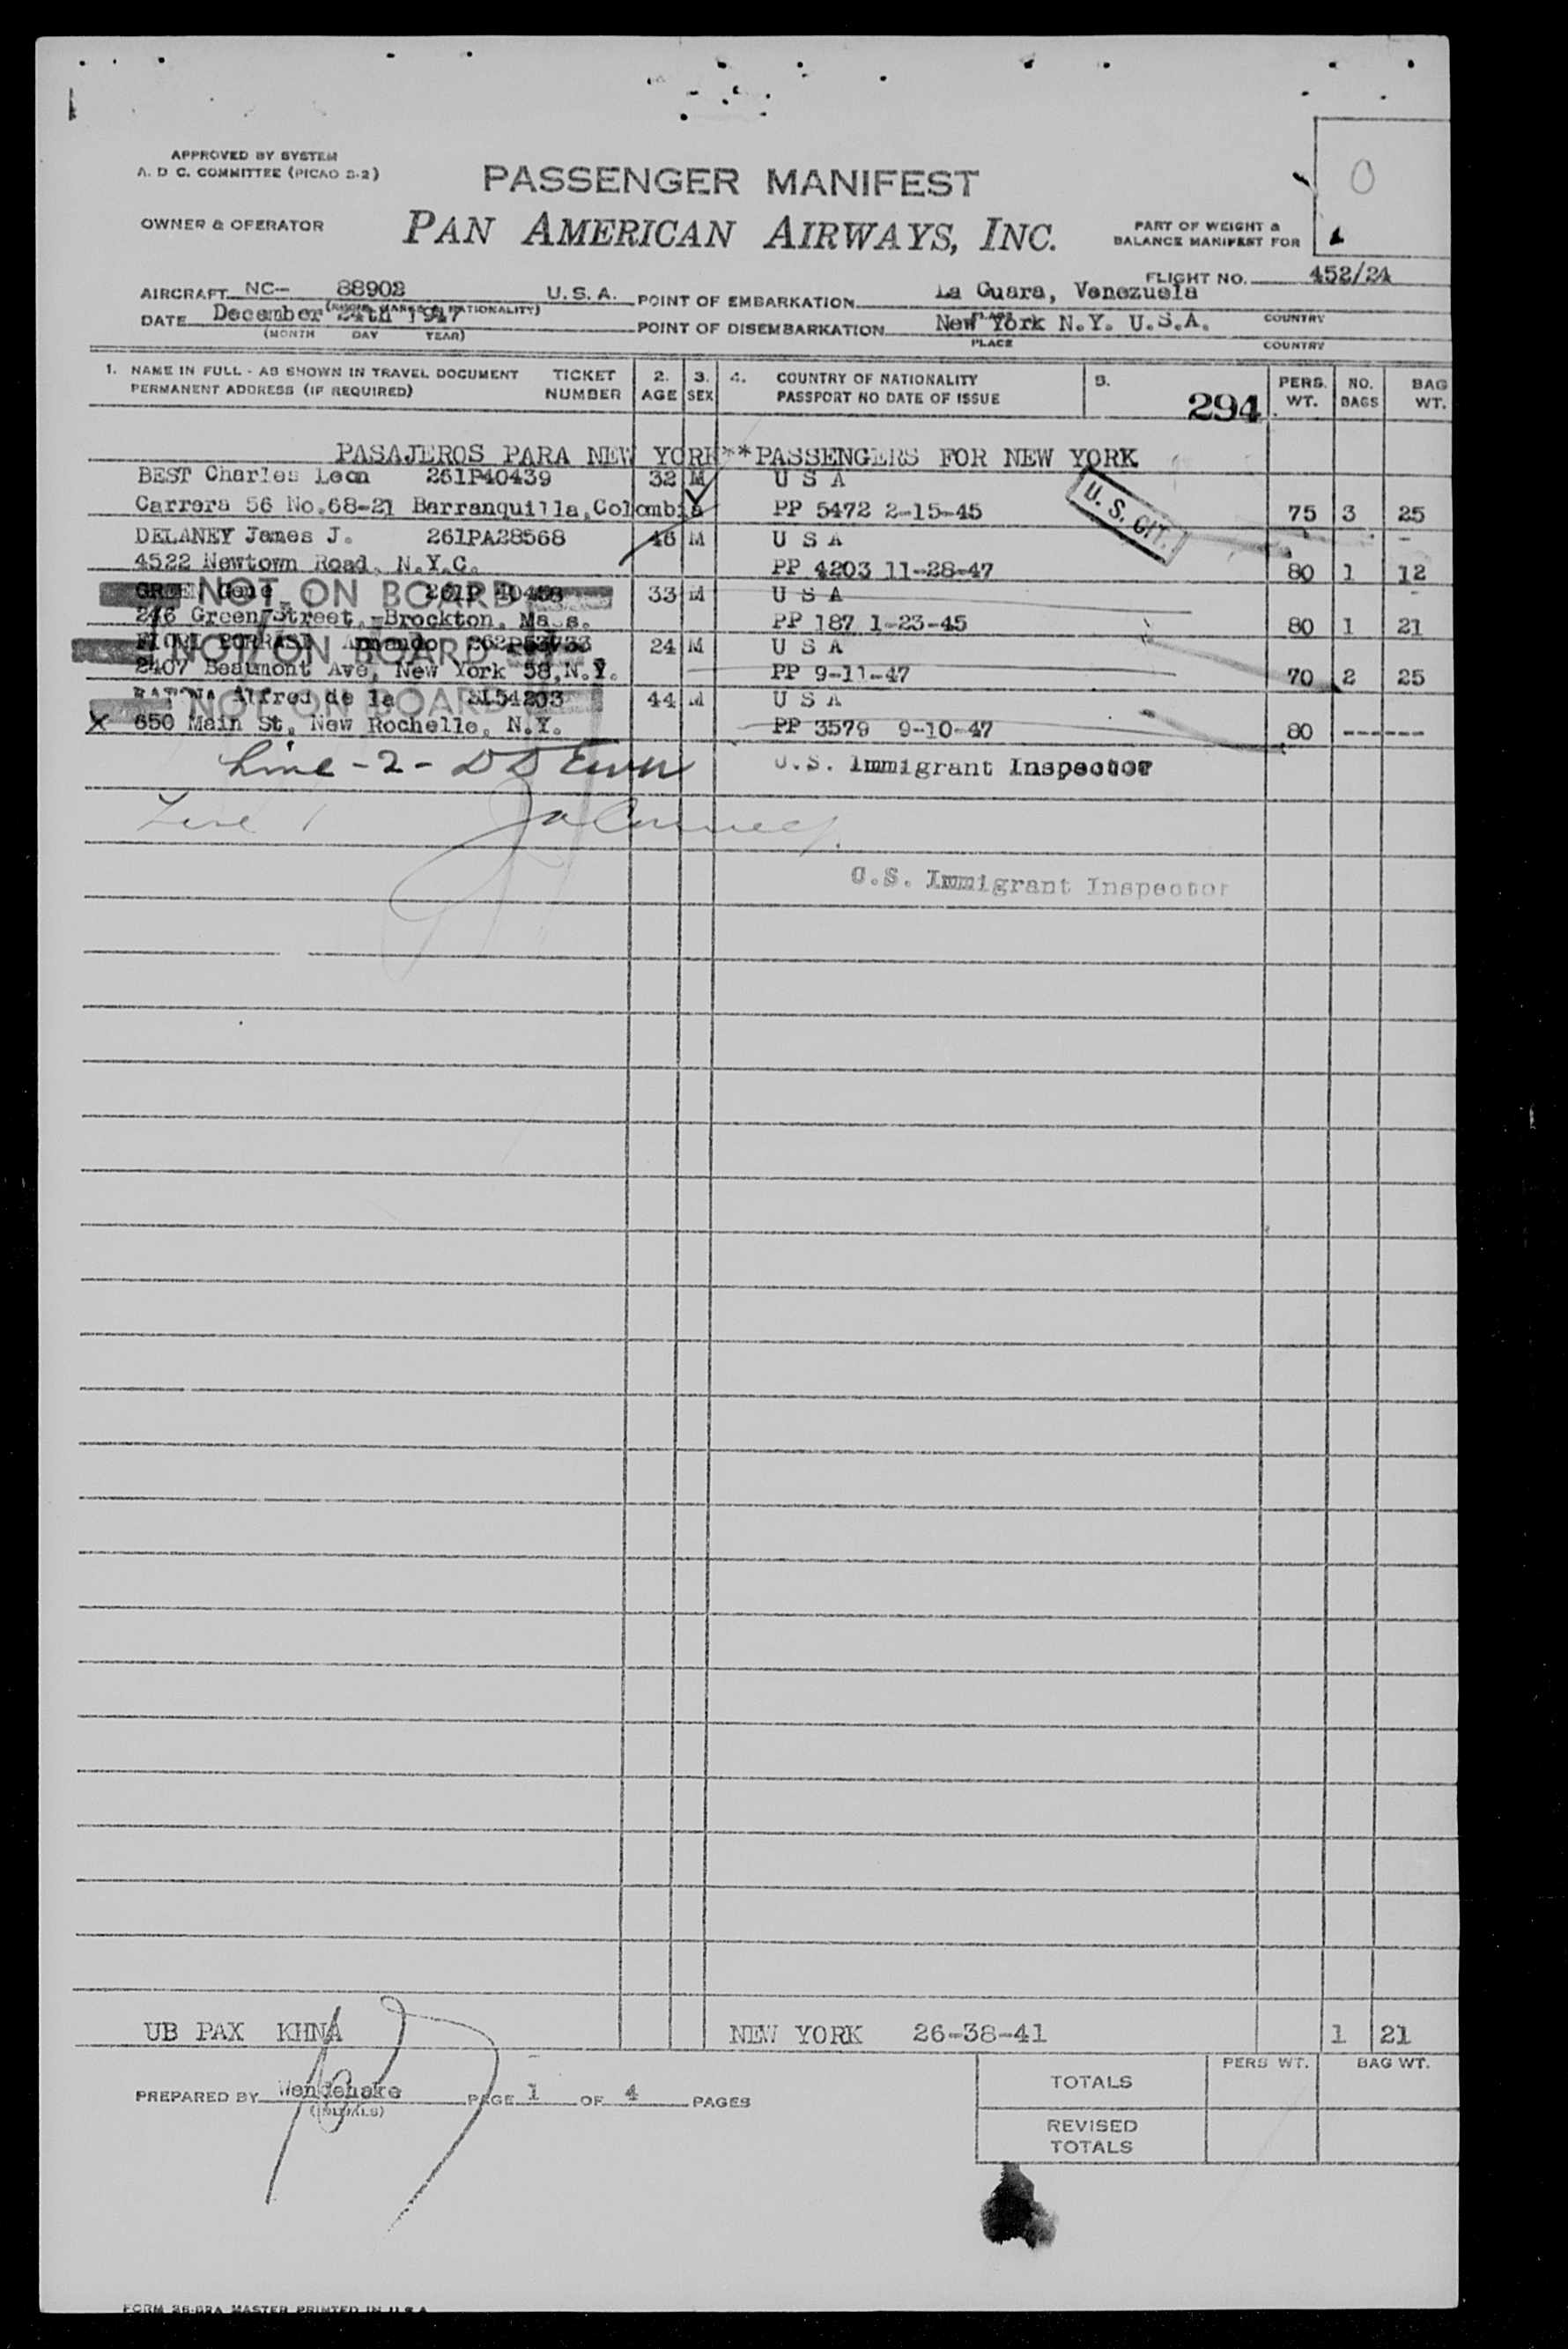 APPROVED BY SYSTEM
A. D C. COMMITTEE (PICAO S-2)
PASSENGER MANIFEST
0
OWNER & OPERATOR
PAN AMERICAN AIRWAYS, INC.
PART OF WEIGHT &
BALANCE MANIFEST FOR
FLIGHT NO. 452/24
AIRCRAFT NC-- 88902 U.S.A. POINT OF EMBARKATION La Guara, Venezuela
DATE December 24th 1947 POINT OF DISEMBARKATION New York N.Y. U.S.A.
PLACE COUNTRY
(MONTH DAY YEAR) PLACE COUNTRY
1. NAME IN FULL - AS SHOWN IN TRAVEL DOCUMENT TICKET 2. 3. 4. COUNTRY OF NATIONALITY 5. PERS. NO. BAG
PERMANENT ADDRESS (IF REQUIRED) NUMBER AGE SEX PASSPORT NO DATE OF ISSUE 294 WT. BAGS WT.
PASAJEROS PARA NEW YORK**PASSENGERS FOR NEW YORK
BEST Charles Leon 261P40439 32 M U S A
Carrera 56 No.68-21 Barranquilla,Colombia PP 5472 2-15-45 U. S. CIT. 75 3 25
DELANEY James J. 261PA28568 46 M U S A
4522 Newtown Road, N.Y.C. PP 4203 11-28-47 80 1 12
NOT ON BOARD
Gene 33 M U S A
246 Green Street, Brockton, Mass. PP 187 1-23-45 80 1 21
NOT ON BOARD
Armando 24 M U S A
2407 Beaumont Ave, New York 58,N.Y. PP 9-11-47 70 2 25
NOT ON BOARD
Alfred de la 44 M U S A
X 650 Main St. New Rochelle, N.Y. PP 3579 9-10-47 80 ------
Line -2- U.S. Immigrant Inspector
Line 1
U.S. Immigrant Inspector
UB PAX KHNA NEW YORK 26-38-41 1 21
PERS WT. BAG WT.
PREPARED BY PAGE 1 OF 4 PAGES TOTALS
(INITIALS)
REVISED
TOTALS